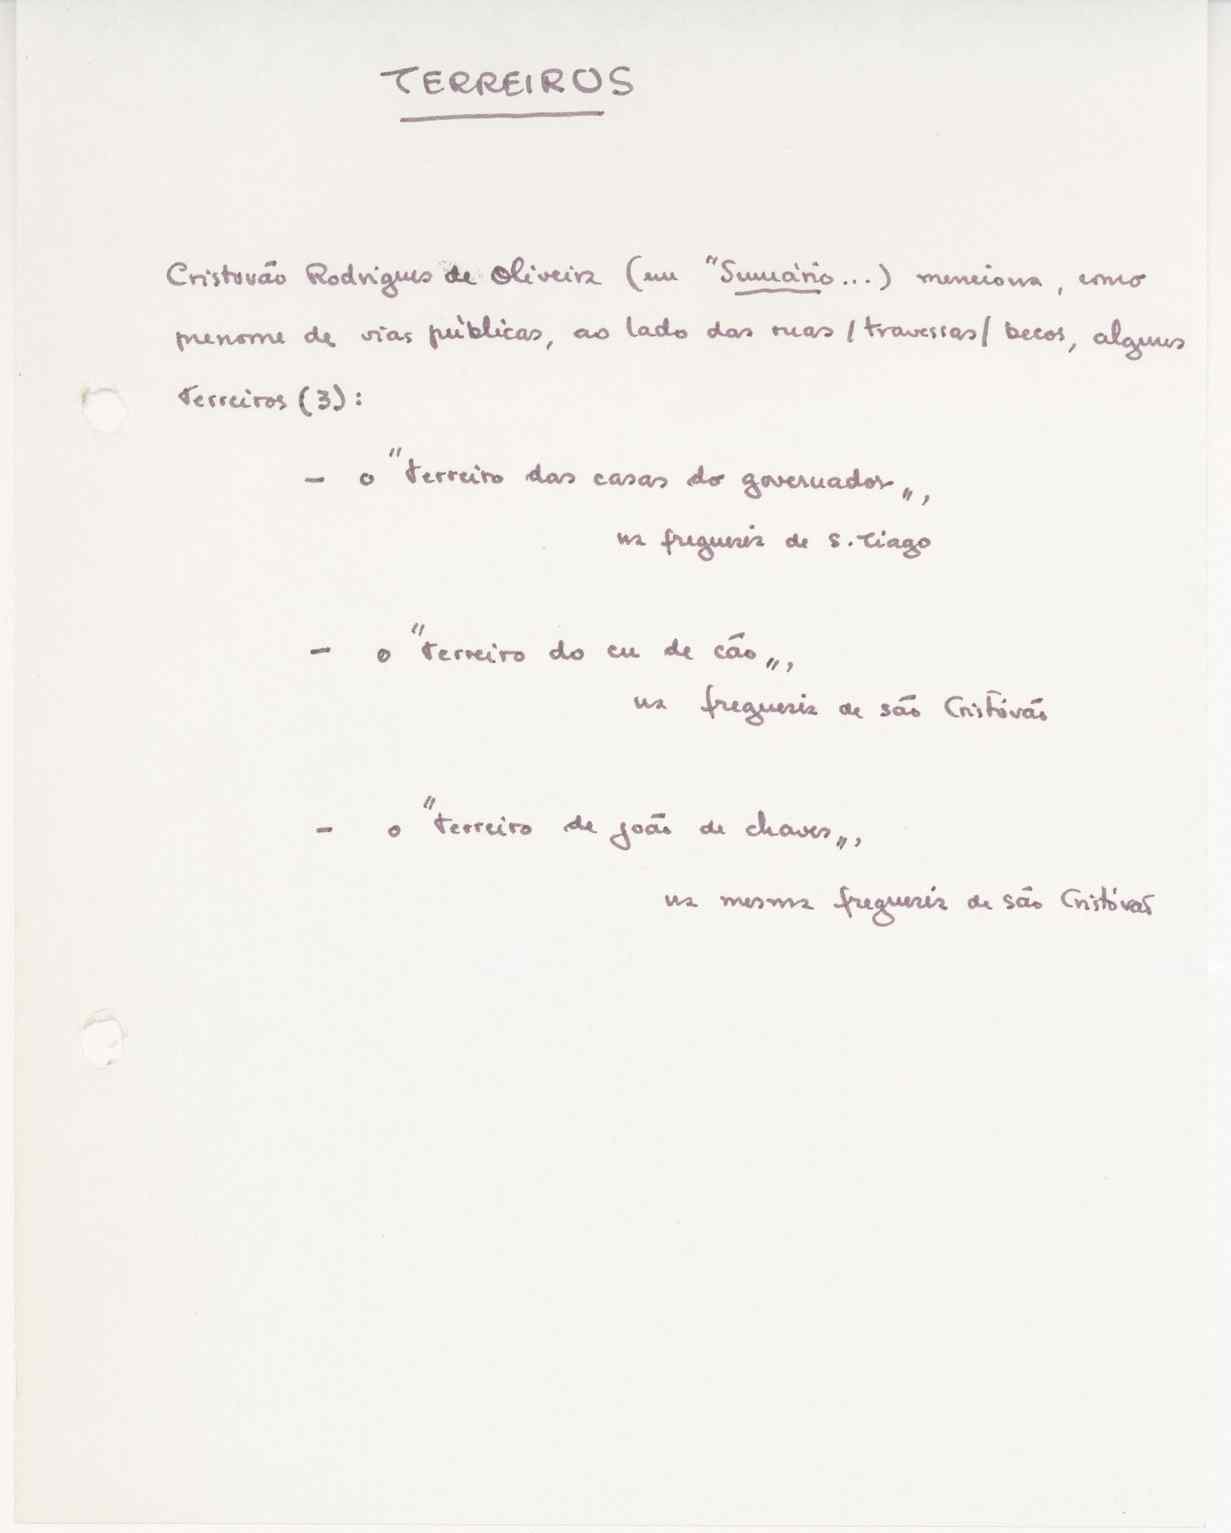 TERREIROS
Cristovão Rodrigues de Oliveira (em "Sumário...) menciona, como
prenome de vias públicas, ao lado das ruas / travessas / becos, alguns
terreiros (3):
- o "terreiro das casas do governador",
na freguesia de S. Tiago
- o "terreiro do cu de cão",
na freguesia de são Cristóvão
- o "terreiro de joão de chaves",
na mesma freguesia de são Cristóvão